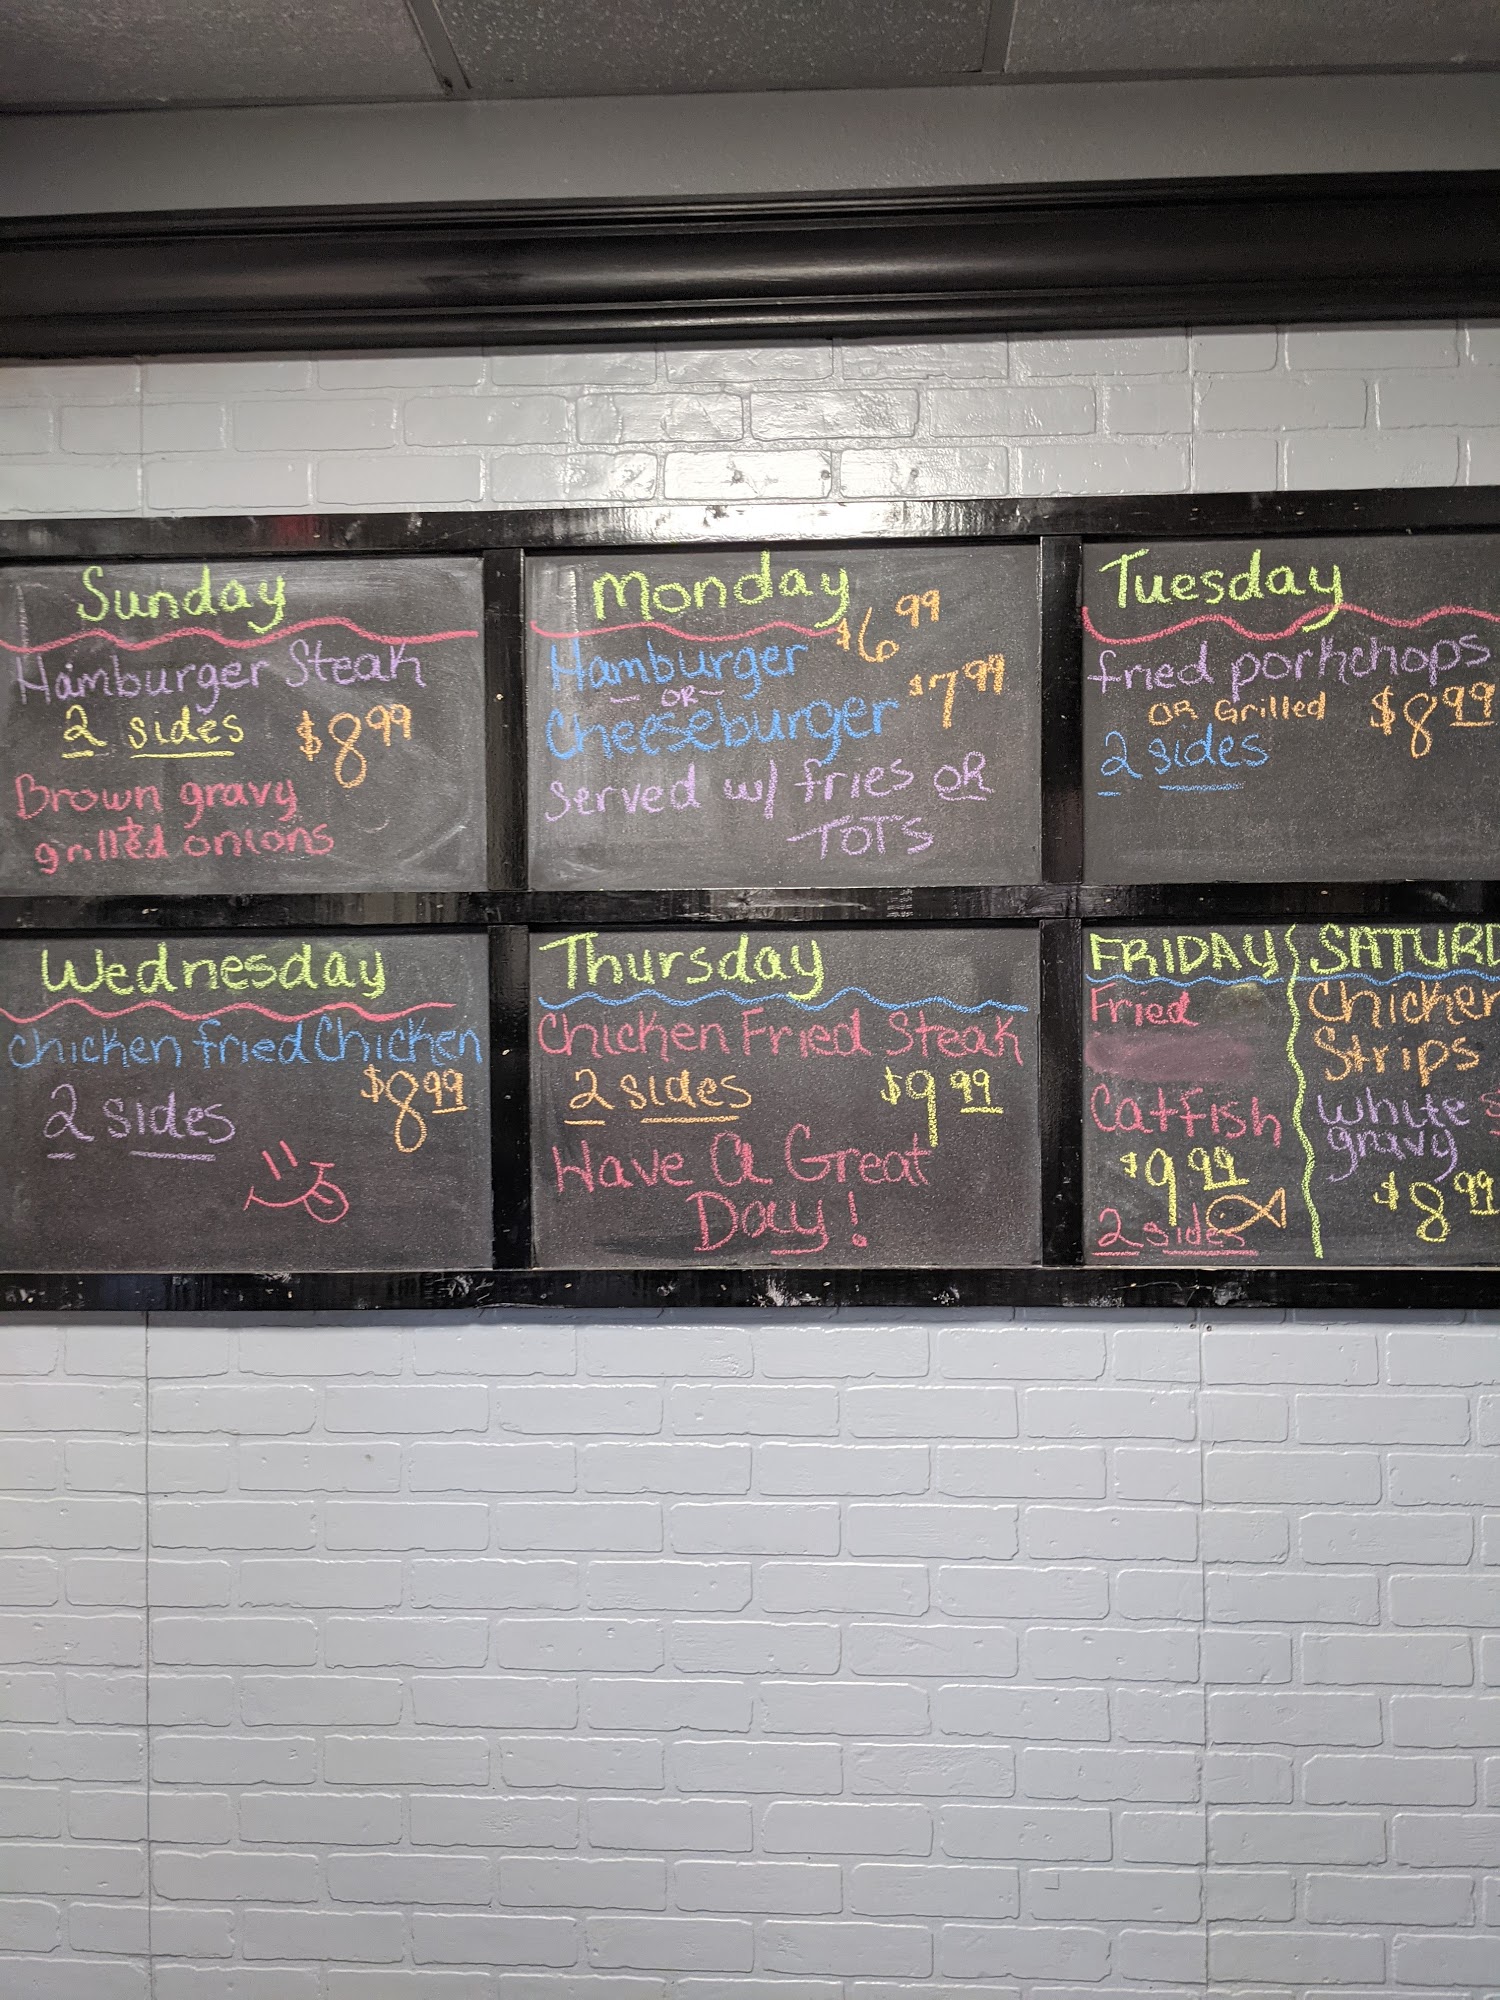 Sunday
Hamburger Steak
2 sides $8.99
Brown gravy
&
grilled onions
Monday
Hamburger $6.99
- OR -
Cheeseburger $7.99
served w/ fries OR
TOTS
Tuesday
fried porkchops
OR Grilled $8.99
2 sides
Wednesday
chicken fried Chicken
2 sides $8.99
Thursday
Chicken Fried Steak
2 sides $9.99
Have A Great
Day!
FRIDAY
Fried
Catfish
$9.99
2 sides
SATURD
Chicken
Strips
white
gravy
$8.99